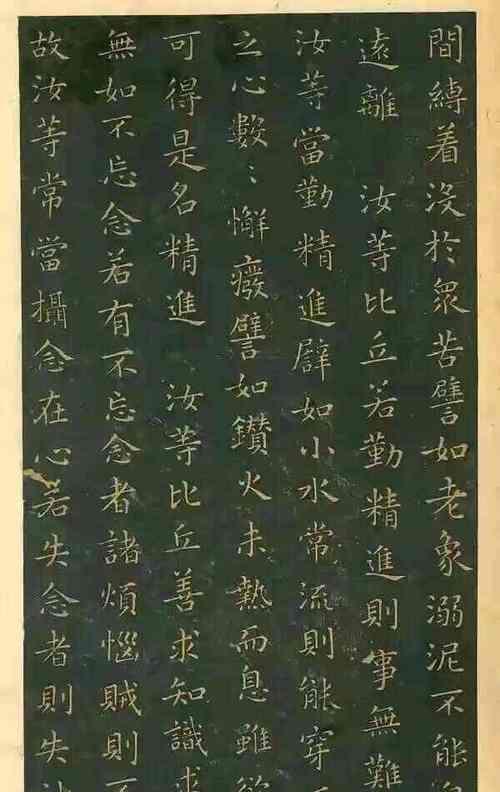 間縛着沒於眾苦譬如老象溺泥不能
遠離 汝等比丘若勤精進則事無難
汝等當勤精進辟如小水常流則能穿
之心數〻懈癈譬如鑽火未熱而息雖欲
可得是名精進 汝等比丘善求知識求
無如不忘念若有不忘念者諸煩惱賊則不
故汝等常當攝念在心若失念者則失